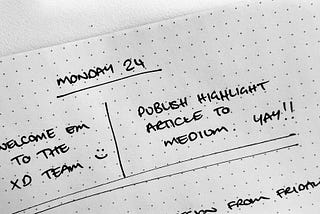 MONDAY 24
WELCOME EM
TO THE
XD TEAM. :)
PUBLISH HIGHLIGHT
ARTICLE TO
MEDIUM. YAY!!
FROM FRIDAY